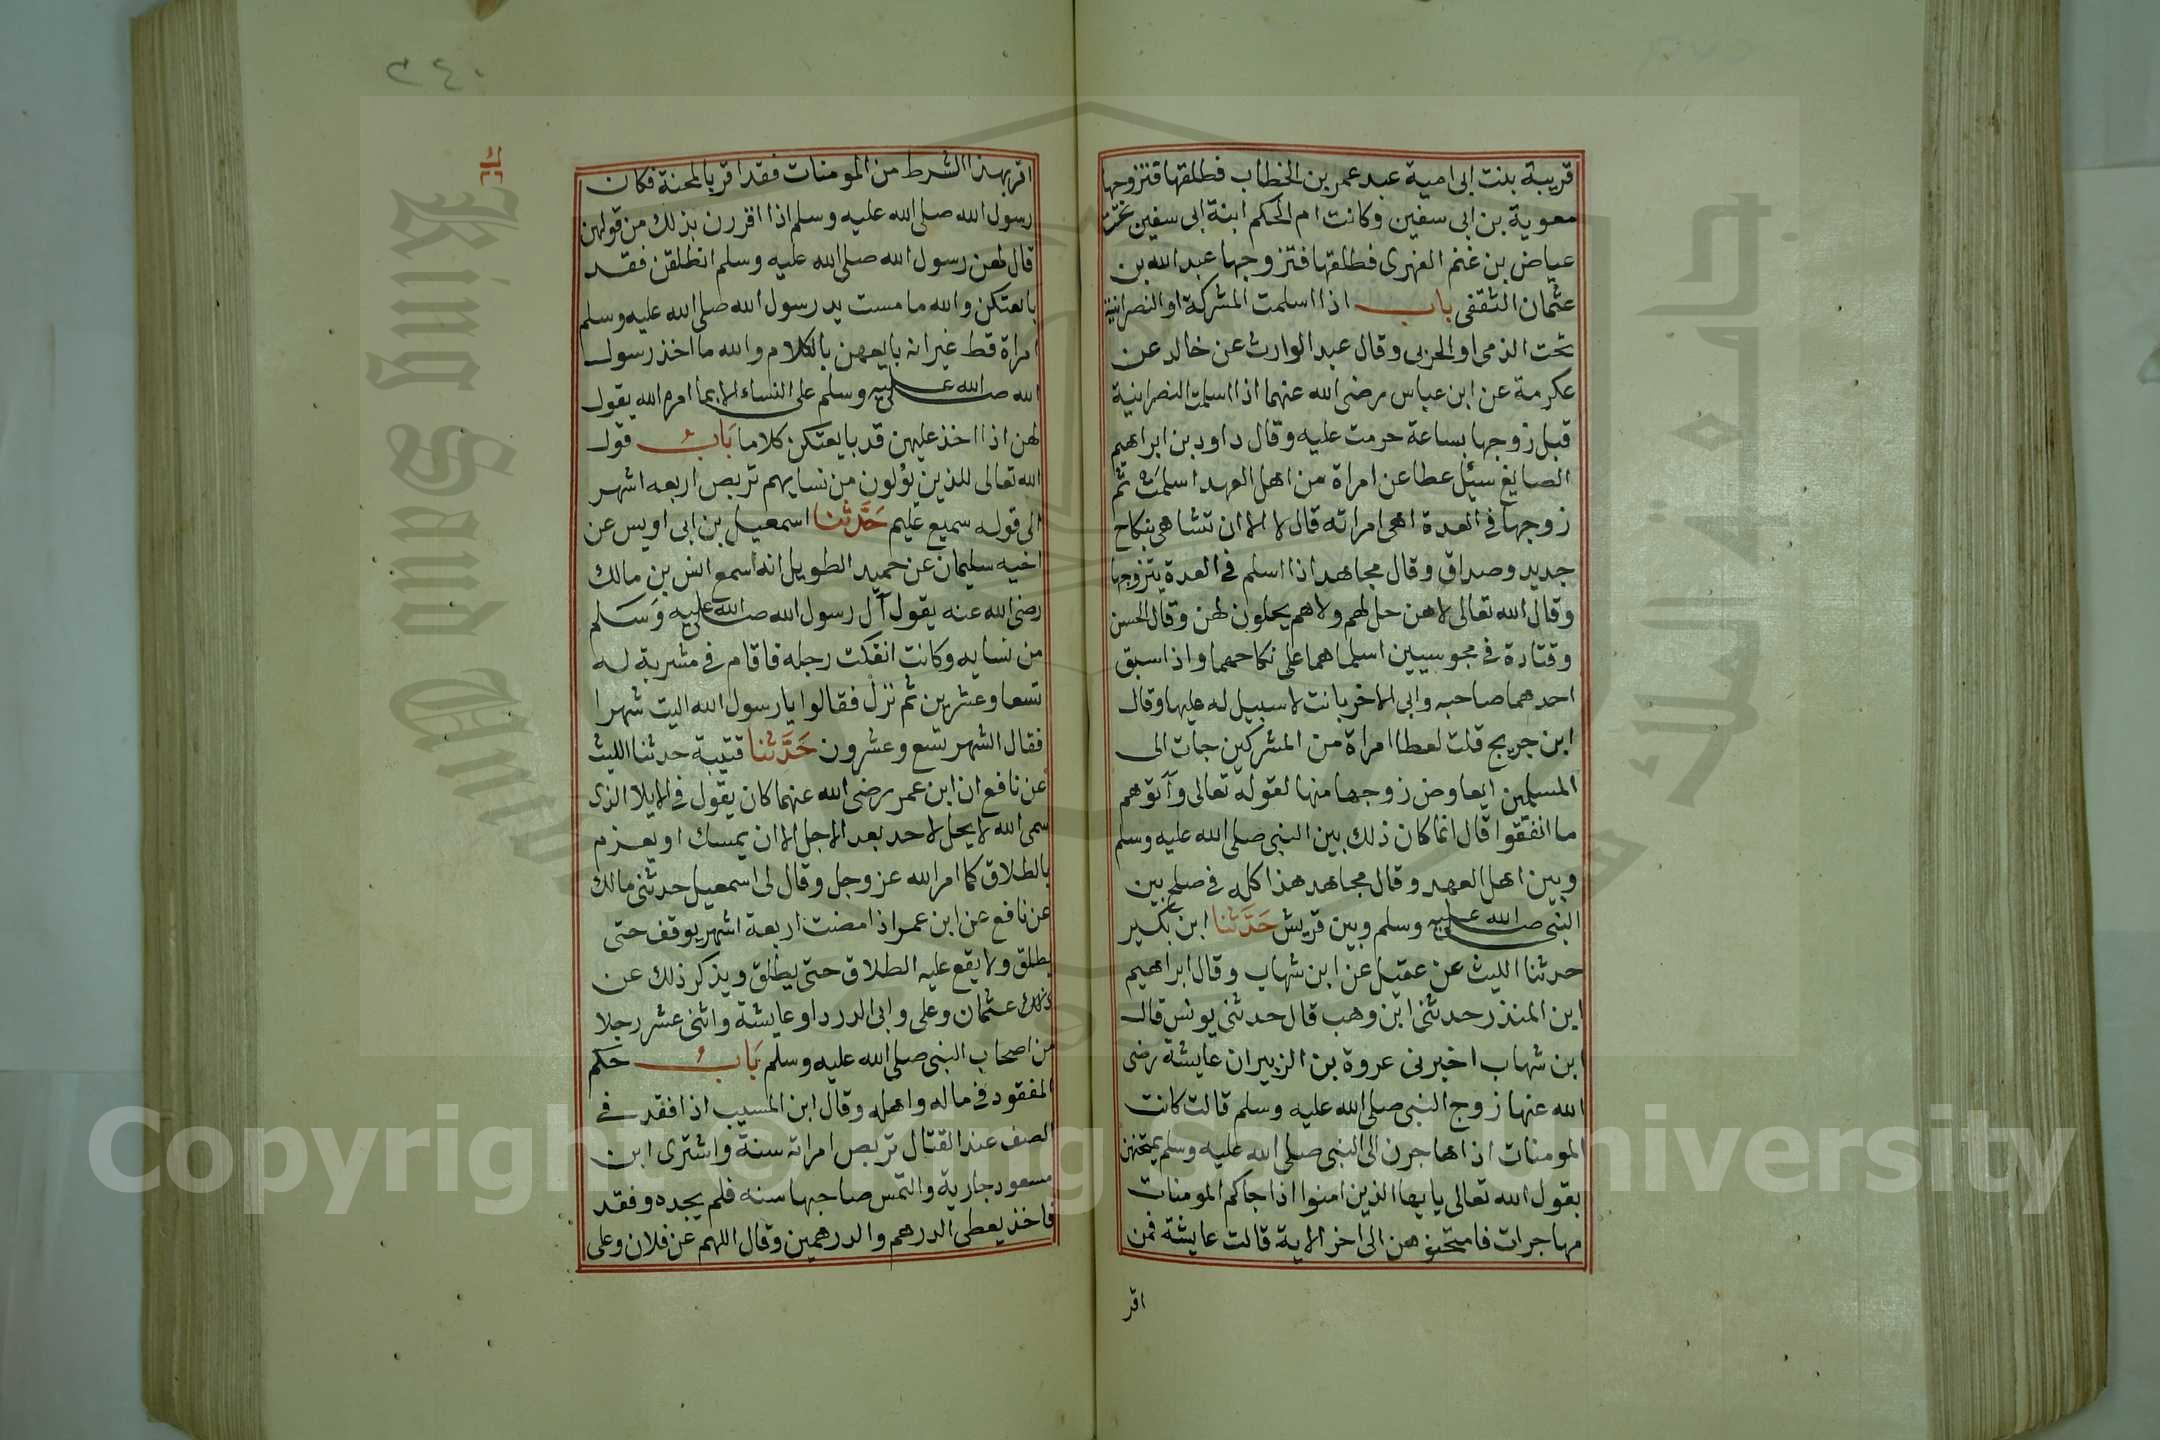 قريبة بنت ابى امية عبد عمر بن الخطاب فطلقها فتزوجها
معوية بن ابى سفين وكانت ام الحكم ابنة ابى سفين تحت
عياض بن غنم الفهرى فطلقها فتزوجها عبد الله بن
عثمان الثقفى باب اذا اسلمت المشركة او النصرانية
تحت الذمى او الحربى وقال عبد الوارث عن خالد عن
عكرمة عن ابن عباس رضى الله عنهما اذا اسلمت النصرانية
قبل زوجها بساعة حرمت عليه وقال داود بن ابراهيم
الصايغ سئل عطا عن امراة من اهل العهد اسلمت ثم
زوجها فى العدة اهى امراته قال لا الا ان تشا هى بنكاح
جديد وصداق وقال مجاهد اذا اسلم فى العدة يتزوجها
وقال الله تعالى لا هن حل لهم ولا هم يحلون لهن وقال الحسن
وقتادة فى مجوسيين اسلما هما على نكاحهما واذا سبق
احدهما صاحبه وابى الاخر بانت لا سبيل له عليها وقال
ابن جريج قلت لعطا امراة من المشركين جات الى
المسلمين ايعاوض زوجها منها لقوله تعالى وآتوهم
ما انفقوا قال انما كان ذلك بين النبى صلى الله عليه وسلم
وبين اهل العهد وقال مجاهد هذا كله فى صلح بين
النبى صلى الله عليه وسلم وبين قريش حدثنا ابن بكير
حدثنا الليث عن عقيل عن ابن شهاب وقال ابراهيم
ابن المنذر حدثنى ابن وهب قال حدثنى يونس قال
ابن شهاب اخبرنى عروة بن الزبير ان عايشة رضى
الله عنها زوج النبى صلى الله عليه وسلم قالت كانت
المومنات اذا هاجرن الى النبى صلى الله عليه وسلم يمتحنهن
بقول الله تعالى يا يها الذين امنوا اذا جاكم المومنات
مهاجرات فامتحنوهن الى اخر الاية قالت عايشة فمن
اقر
٢٤٠
اقر بهذا الشرط من المومنات فقد اقر بالمحنة فكان
رسول الله صلى الله عليه وسلم اذا اقررن بذلك من قولهن
قال لهن رسول الله صلى الله عليه وسلم انطلقن فقد
بايعتكن والله ما مست يد رسول الله صلى الله عليه وسلم
امراة قط غير انه بايعهن بالكلام والله ما اخذ رسول
الله صلى الله عليه وسلم على النساء الا بما امره الله يقول
لهن اذا اخذ عليهن قد بايعتكن كلاما باب قول
الله تعالى للذين يؤلون من نسايهم تربص اربعه اشهر
الى قوله سميع عليم حدثنا اسمعيل بن ابى اويس عن
اخيه سليمان عن حميد الطويل انه سمع انس بن مالك
رضى الله عنه يقول آل رسول الله صلى الله عليه وسلم
من نسايه وكانت انفكت رجله فاقام فى مشربة له
تسعا وعشرين ثم نزل فقالوا يا رسول الله اليت شهرا
فقال الشهر تسع وعشرون حدثنا قتيبة حدثنا الليث
عن نافع ان ابن عمر رضى الله عنهما كان يقول فى الايلا الذى
سمى الله لا يحل لاحد بعد الاجل الا ان يمسك او يعزم
بالطلاق كما امر الله عز وجل وقال لى اسمعيل حدثنى مالك
عن نافع عن ابن عمر اذا مضت اربعة اشهر يوقف حتى
يطلق ولا يقع عليه الطلاق حتى يطلق ويذكر ذلك عن
ذلك عثمان وعلى وابى الدرداو عايشة واثنى عشر رجلا
من اصحاب النبى صلى الله عليه وسلم باب حكم
المفقود فى ماله واهله وقال ابن المسيب اذا فقد فى
الصف عند القتال تربص امراته سنة واشترى ابن
مسعود جارية والتمس صاحبها سنه فلم يجده وفقد
فاخذ يعطى الدرهم والدرهمين وقال اللهم عن فلان وعلى
جامعة الملك سعود
King Saud University
Copyright © King Saud University